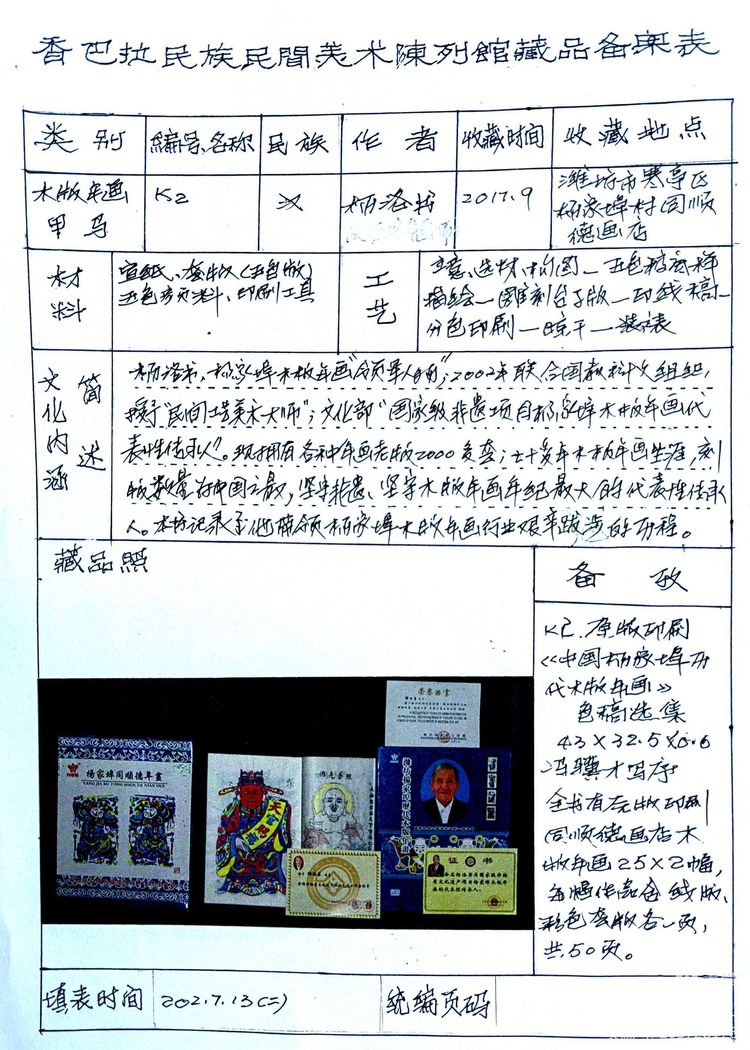 香巴拉民族民間美术陳列館藏品备案表
类别
編号、名称
民族
作者
收藏时间
收藏地点
木版年画
甲马
K2
汉
杨洛书
2017.9
潍坊市寒亭区
杨家埠村同顺
德画店
材料
宣纸、套版(五色版)
五色颜料、印刷工具
工艺
选材、构图—五色稿试样
描绘—雕刻台子版—印线稿—
分色印刷—晾干—装裱
文化内涵
简述
杨洛书,杨家埠木版年画"领军人物";2002年联合国教科文组组织,
授予"民间工艺美术大师";文化部"国家级非遗项目杨家埠木版年画代
表性传承人"。现拥有各种年画老版2000多套;七十多年木板年画生涯,刻
版数量为中国之最,坚守非遗、坚守木版年画年纪最大的代表性传承
人。本书记录了他带领杨家埠木版年画行业艰辛跋涉的历程。
藏品照
备考
K2.原版印刷
《中国杨家埠历
代木版年画》
色稿选集
43×32.5×6.6
冯骥才写序
全书有原版印刷
同顺德画店木
版年画25×2幅,
每幅作品含线版、
彩色套版各一页,
共50页。
榮譽證書
楊家埠同順德年畫
YANG JIA BU TONG SHUN DE NIAN HUA
证书
填表时间
202.7.13(二)
统编页码